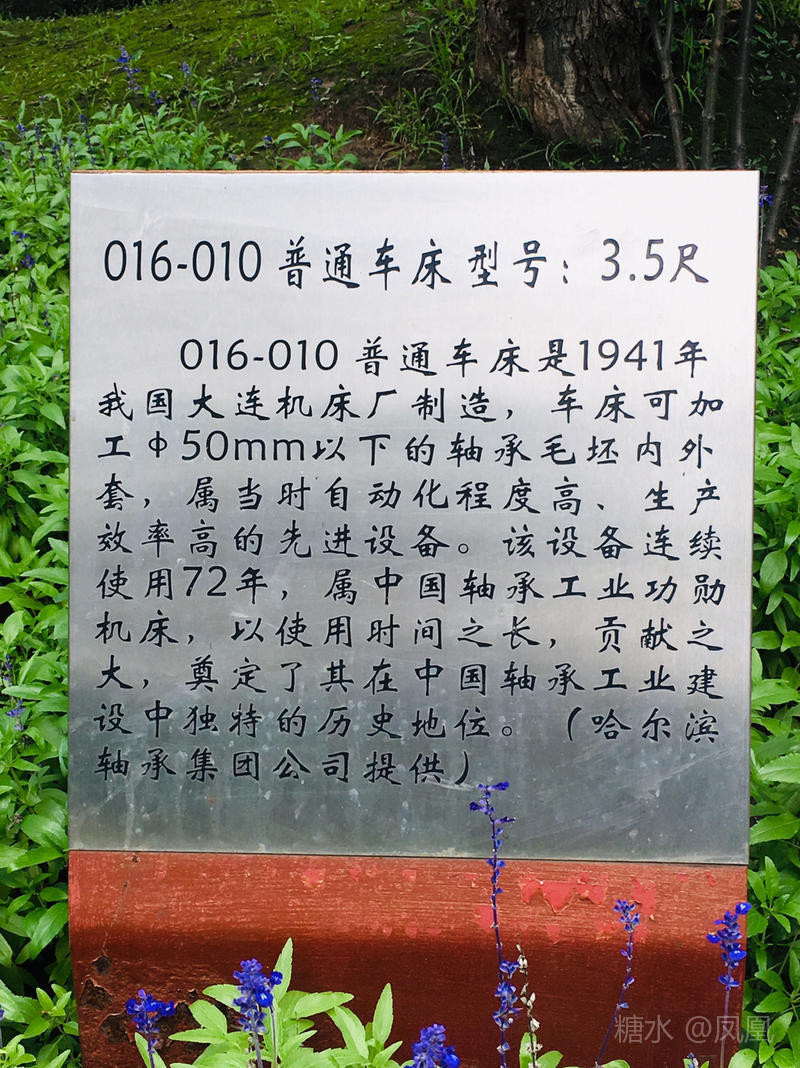 016-010 普通车床型号：3.5尺
016-010 普通车床是1941年
我国大连机床厂制造，车床可加
工Φ50mm以下的轴承毛坯内外
套，属当时自动化程度高、生产
效率高的先进设备。该设备连续
使用72年，属中国轴承工业功勋
机床，以使用时间之长，贡献之
大，奠定了其在中国轴承工业建
设中独特的历史地位。（哈尔滨
轴承集团公司提供）
糖水 @凤凰